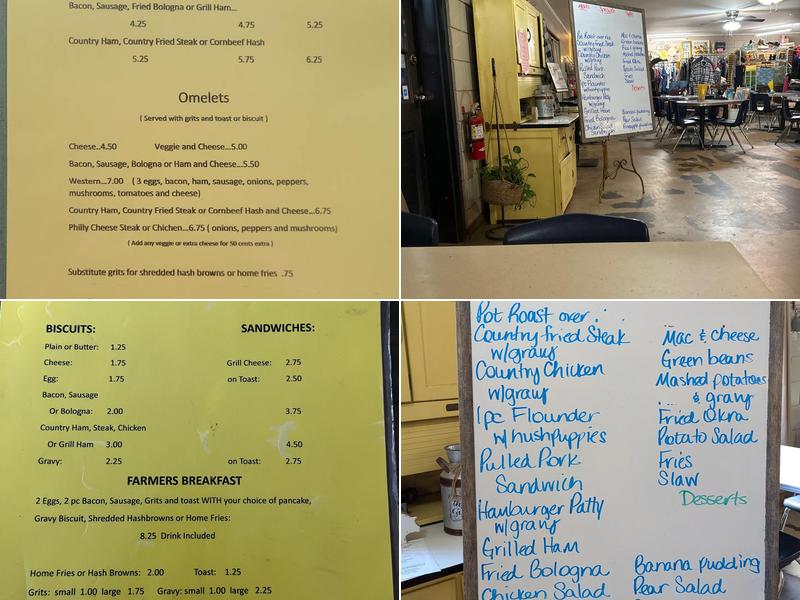 Bacon, Sausage, Fried Bologna or Grill Ham...
4.25 4.75 5.25
Country Ham, Country Fried Steak or Cornbeef Hash
5.25 5.75 6.25
Omelets
( Served with grits and toast or biscuit )
Cheese...4.50 Veggie and Cheese...5.00
Bacon, Sausage, Bologna or Ham and Cheese...5.50
Western...7.00 ( 3 eggs, bacon, ham, sausage, onions, peppers,
mushrooms, tomatoes and cheese)
Country Ham, Country Fried Steak or Cornbeef Hash and Cheese...6.75
Philly Cheese Steak or Chichen...6.75 ( onions, peppers and mushrooms)
( Add any veggie or extra cheese for 50 cents extra )
Substitute grits for shredded hash browns or home fries .75
Pot Roast over rice
Country Fried Steak
w/gravy
Country Chicken
w/gravy
Pulled Pork
Sandwich
1pc Flounder
w/hushpuppies
Hamburger Patty
w/gravy
Grilled Ham
Fried Bologna
Chicken Salad
Sandwich
Mac & cheese
Green beans
Fried Okra
Potato Salad
Fries
Slaw
Desserts
Banana pudding
Pear Salad
Pineapple
BISCUITS: SANDWICHES:
Plain or Butter: 1.25
Cheese: 1.75 Grill Cheese: 2.75
Egg: 1.75 on Toast: 2.50
Bacon, Sausage
Or Bologna: 2.00 3.75
Country Ham, Steak, Chicken
Or Grill Ham 3.00 4.50
Gravy: 2.25 on Toast: 2.75
FARMERS BREAKFAST
2 Eggs, 2 pc Bacon, Sausage, Grits and toast WITH your choice of pancake,
Gravy Biscuit, Shredded Hashbrowns or Home Fries:
8.25 Drink Included
Home Fries or Hash Browns: 2.00 Toast: 1.25
Grits: small 1.00 large 1.75 Gravy: small 1.00 large 2.25
Pot Roast over
Country fried Steak
w/gravy
Country Chicken
w/gravy
1pc Flounder
w/hushpuppies
Pulled Pork
Sandwich
Hamburger Patty
w/gravy
Grilled Ham
Fried Bologna
Chicken Salad
Mac & cheese
Green beans
Mashed potatoes
& gravy
Fried Okra
Potato Salad
Fries
Slaw
Desserts
Banana pudding
Pear Salad